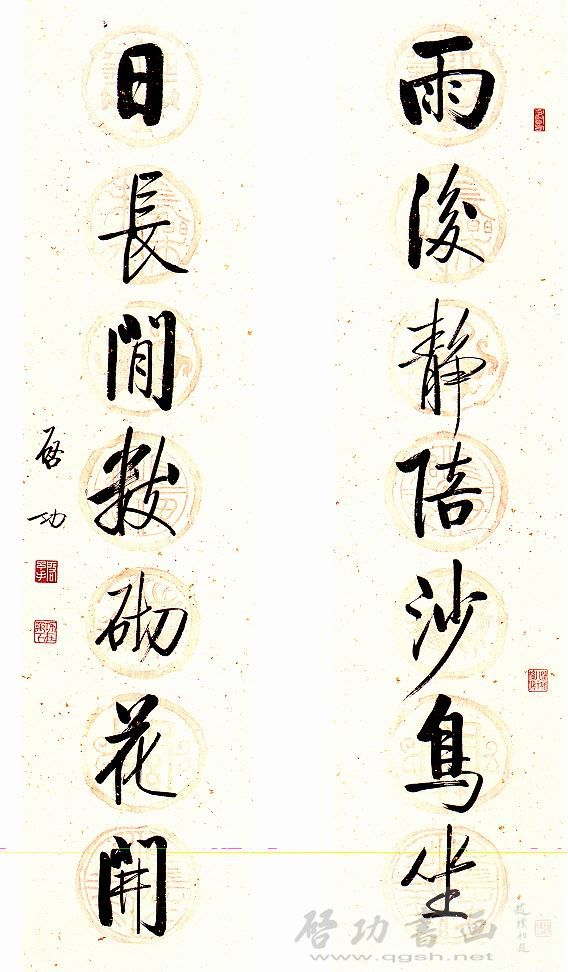 雨後靜陪沙鳥坐
日長閒數砌花開
啓功
啓功书画
www.qgsh.net